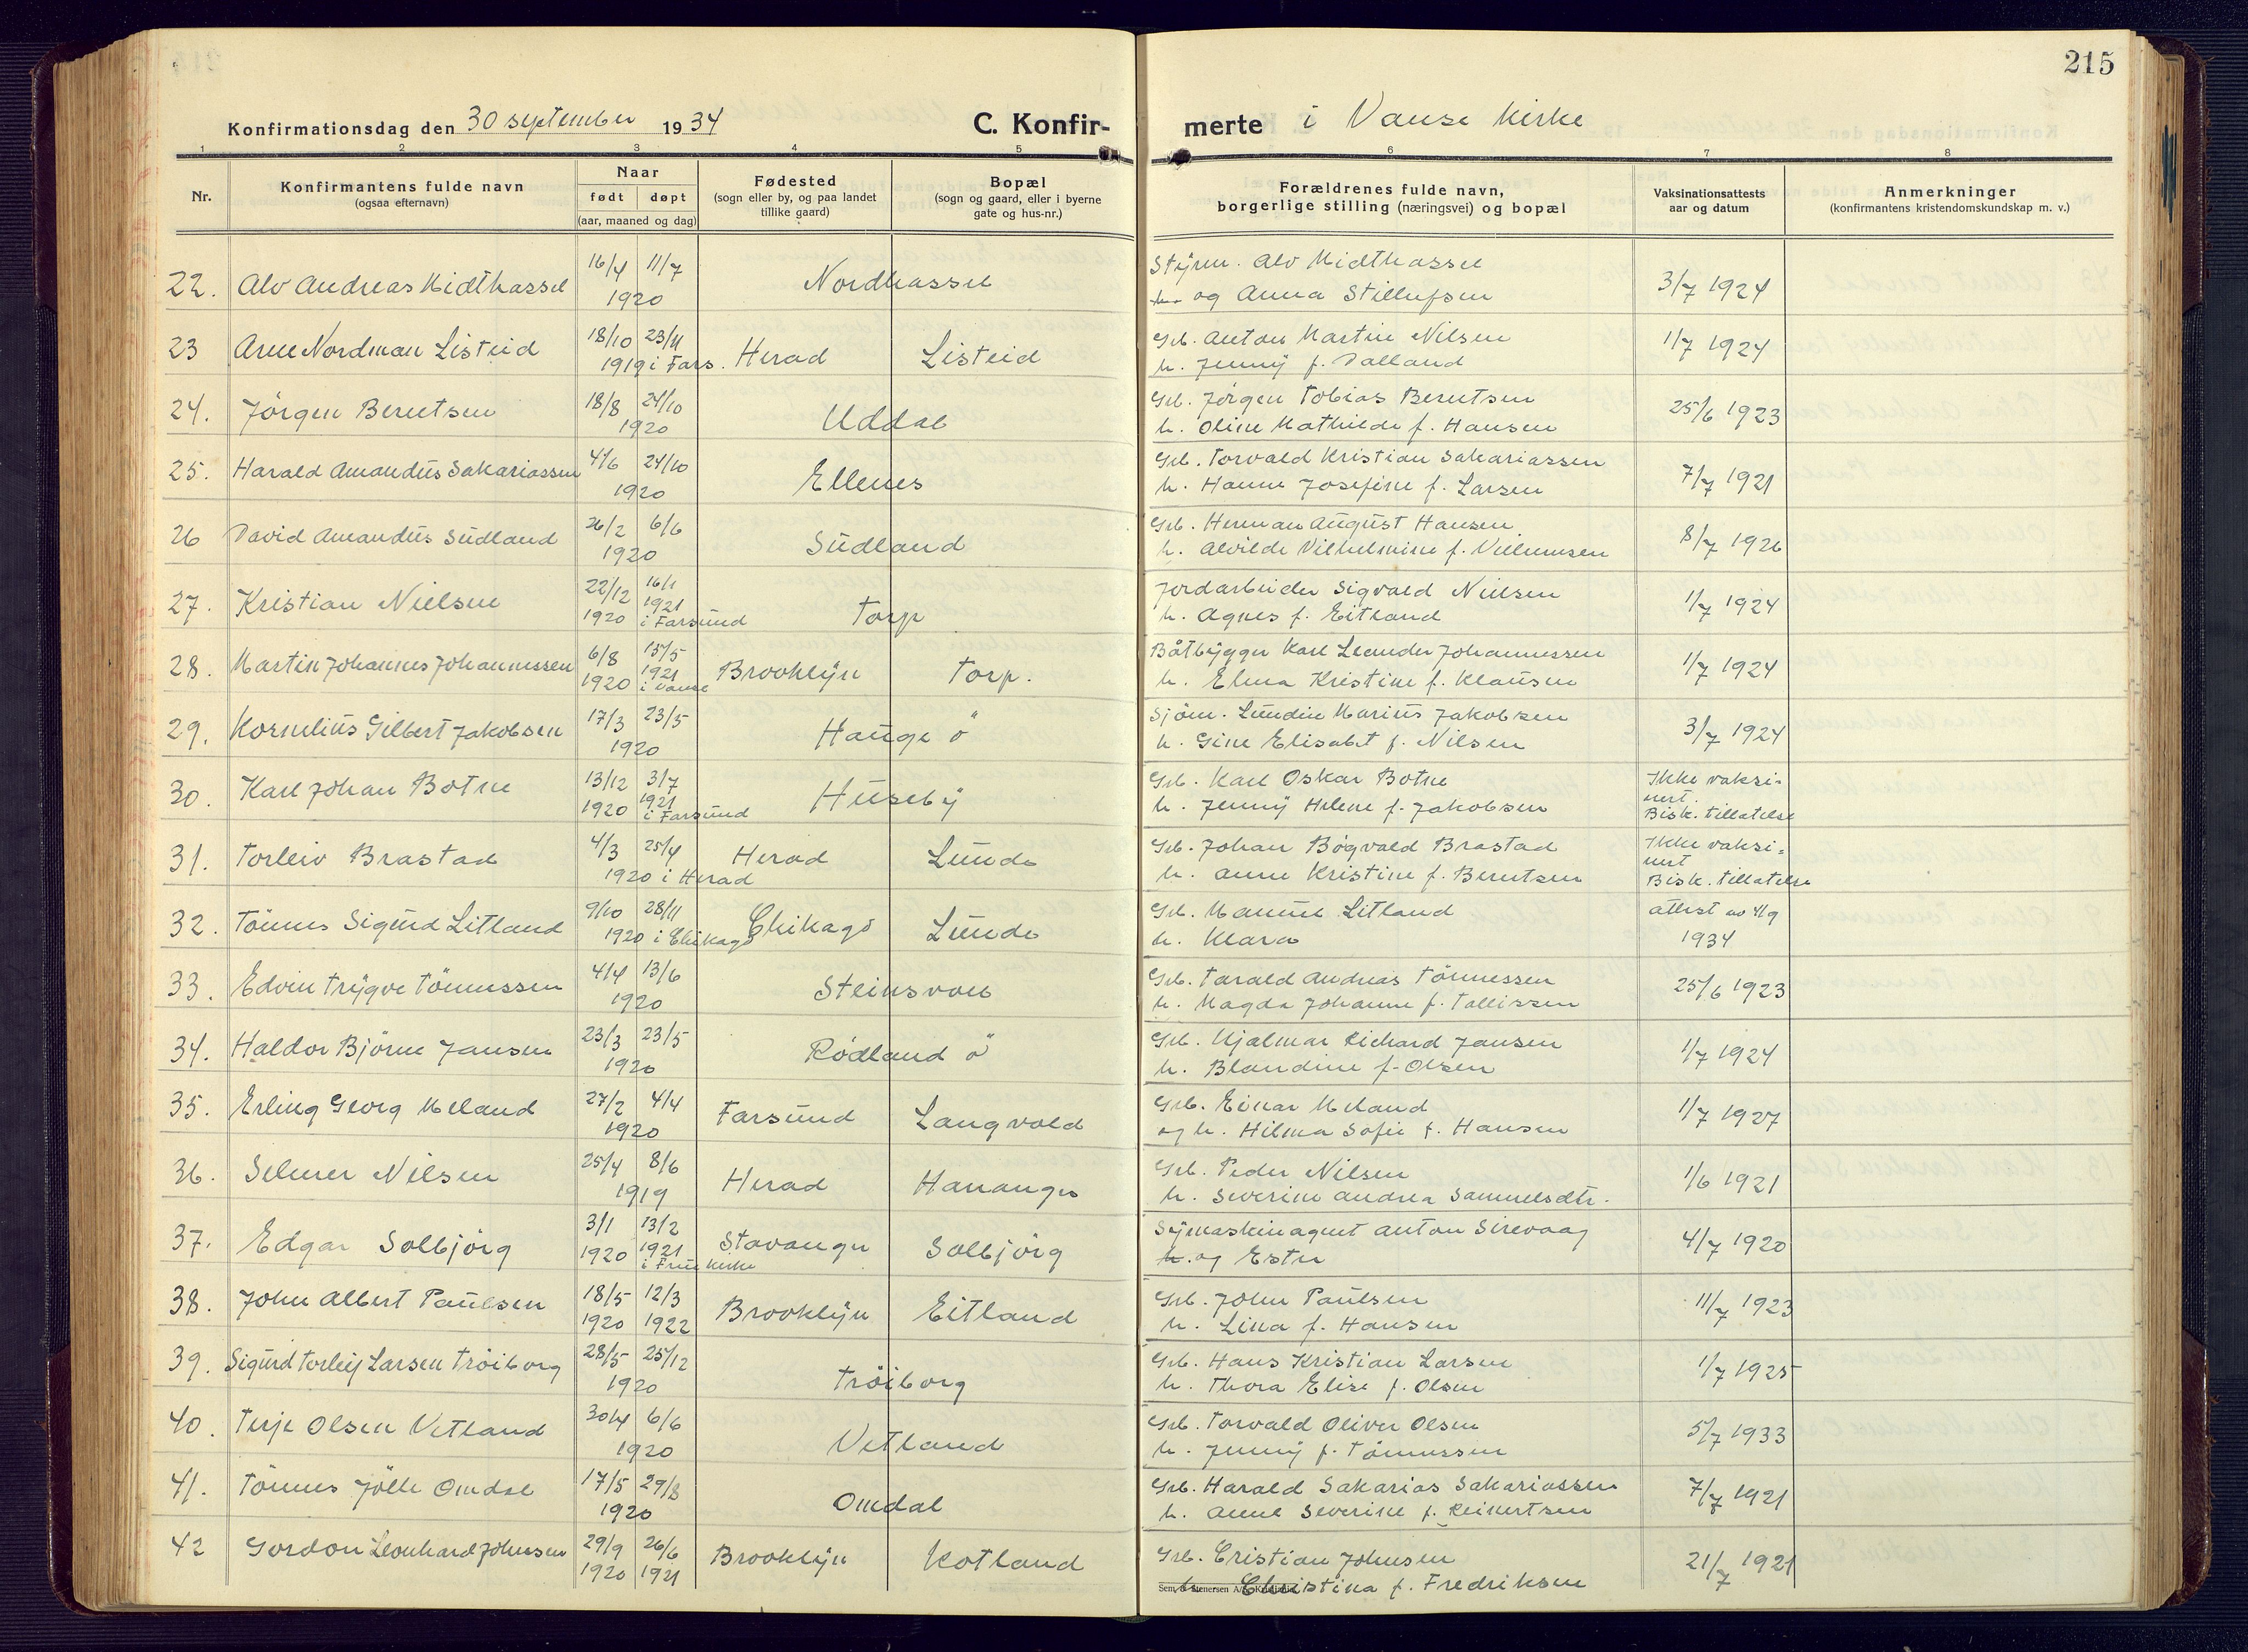 215
Konfirmationsdag den 30 september 1934
C. Konfir-
merte i Vanse kirke
1 2 3 4 5 6 7 8
Nr.
Konfirmantens fulde navn
(ogsaa efternavn)
Naar
født døpt
(aar, maaned og dag)
Fødested
(sogn eller by, og paa landet
tillike gaard)
Bopæl
(sogn og gaard, eller i byerne
gate og hus-nr.)
Forældrenes fulde navn,
borgerlige stilling (næringsvei) og bopæl
Vaksinationsattests
aar og datum
Anmerkninger
(konfirmantens kristendomskundskap m. v.)
22. Alv Andreas Midthassel 16/4 11/7 1920 Nordhassel
Styrm. Alv Midthassel
h. og Anna Stellufsen
3/7 1924
23 Arne Nordman Listeid 18/10 23/11 1919 i Fars. Herad Listeid
Grb. Anton Martin Nilsen
h. Jenny f. Dalland
1/7 1924
24. Jörgen Berntsen 18/8 24/10 1920 Uddal
Grb. Jörgen Tobias Berntsen
h. Oline Mathilde f. Hansen
25/6 1923
25. Harald Amandus Sakariassen 4/6 24/10 1920 Ellenes
Grb. Torvald Kristian Sakariassen
h. Hanne Josefine f. Larsen
7/7 1921
26 David Amandus Sudland 26/2 6/6 1920 Sudland
Grb. Herman August Hansen
h. Alvilde Vilhelmine f. Villumsen
8/7 1926
27. Kristian Nielsen 22/12 1920 16/1 1921 i Farsund Torp
Jordarbeider Sigvald Nielsen
h. Agnes f. Eitland
1/7 1924
28. Martin Johannes Johannessen 6/8 1920 15/5 1921 i Vanse Brooklyn Torp.
Båtbygger Karl Leander Johannessen
h. Elma Kristine f. Klausen
1/7 1924
29. Kornelius Gilbert Jakobsen 17/3 23/5 1920 Hauge ö
Sjöm. Lundin Marius Jakobsen
h. Gine Elisabet f. Nilsen
3/7 1924
30. Karl Johan Botne 13/12 1920 3/7 1921 i Farsund Huseby
Grb. Karl Oskar Botne
h. Jenny Helene f. Jakobsen
Ikke vaksi-
nert.
Bisk. tillatelse
31. Torleiv Brastad 4/3 25/4 1920 i Herad Herad Lunde
Grb. Johan Bøgvald Brastad
h. Anne Kristine f. Berntsen
Ikke vaksi-
nert
Bisk. tillatelse
32. Tönnes Sigurd Litland 9/10 28/11 1920 i Chikago Chikago Lunde
Grb. Manuel Litland
h. Klara
attest av 4/9
1934
33. Edvin Trygve Tönnessen 4/4 13/6 1920 Steinsvoll
Grb. Tarald Andreas Tönnessen
h. Magda Johanne f. Tallissen
25/6 1923
34. Haldor Björne Jansen 23/3 23/5 1920 Rødland ö
Grb. Hjalmar Richard Jansen
h. Blandine f. Olsen
1/7 1924
35. Erling Georg Meland 27/2 4/4 1920 Farsund Langvold
Grb. Einar Meland
og h. Hilma Sofie f. Hansen
1/7 1927
36. Selmer Nilsen 25/4 8/6 1919 Herad Hananger
Grb. Peder Nilsen
h. Severine Andrea Samuelsdtr.
1/6 1921
37. Edgar Solbjörg 3/1 1920 13/2 1921 i Frue kirke Stavanger Solbjörg
Symaskinagent Anton Sirevaag
h. og Ester
4/7 1920
38. John Albert Paulsen 18/5 1920 12/3 1922 Brooklyn Eitland
Grb. John Paulsen
h. Lina f. Hansen
11/7 1923
39. Sigurd Torleif Larsen Tröiborg 28/5 25/12 1920 Tröiborg
Grb. Hans Kristian Larsen
h. Thora Elise f. Olsen
1/7 1925
40. Terje Olsen Vetland 30/4 6/6 1920 Vetland
Grb. Torvald Oliver Olsen
h. Jenny f. Tönnessen
5/7 1933
41. Tönnes Jölle Omdal 17/5 29/8 1920 Omdal
Grb. Harald Sakarias Sakariassen
h. Anne Severine f. Reinertsen
7/7 1921
42 Gordon Leonhard Johnsen 29/9 1920 26/6 1921 Brooklyn Kotland
Grb. Cristian Johnsen
h. Christina f. Fredriksen
21/7 1921